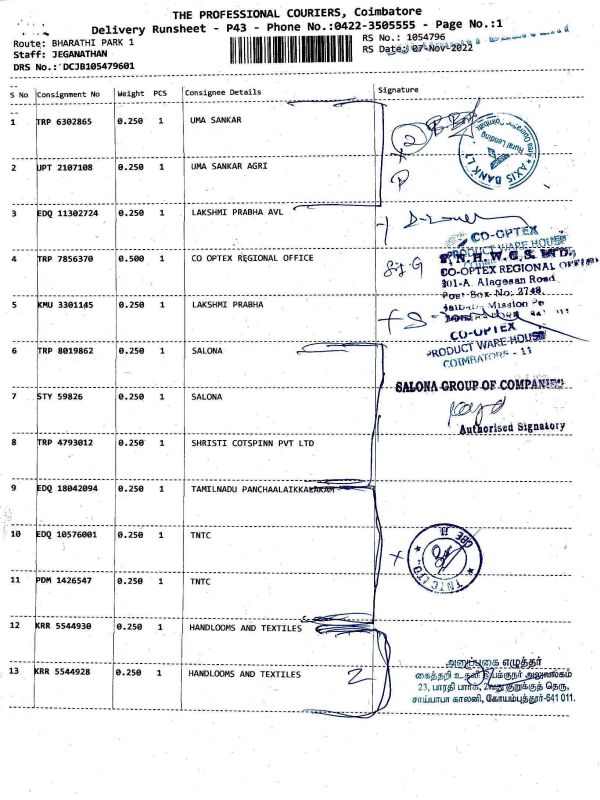 THE PROFESSIONAL COURIERS, Coimbatore
Delivery Runsheet - P43 - Phone No.:0422-3505555 - Page No.:1
Route: BHARATHI PARK 1
RS No.: 1054796
Staff: JEGANATHAN
RS Date: 07-Nov-2022
DRS No.: DCJB105479601
S No Consignment No Weight PCS Consignee Details Signature
1 TRP 6302865 0.250 1 UMA SANKAR
2
AXIS BANK LT
Rural Lending
2 UPT 2107108 0.250 1 UMA SANKAR AGRI
3 EDQ 11302724 0.250 1 LAKSHMI PRABHA AVL
CO-OPTEX
PRODUCT WARE HOUSE
4 TRP 7856370 0.500 1 CO OPTEX REGIONAL OFFICE
CO-OPTEX REGIONAL OFFICE
201-A. Alagesan Road
Post Box No: 2748,
5 KMU 3301145 0.250 1 LAKSHMI PRABHA
CO-OPTEX
PRODUCT WARE HOUSE
COIMBATORE - 11
6 TRP 8019862 0.250 1 SALONA
SALONA GROUP OF COMPANIES
7 STY 59826 0.250 1 SALONA
Authorised Signatory
8 TRP 4793012 0.250 1 SHRISTI COTSPINN PVT LTD
9 EDQ 18042094 0.250 1 TAMILNADU PANCHAALAIKKALAKAM
10 EDQ 10576001 0.250 1 TNTC
TNTC LTD
CBE
11 PDM 1426547 0.250 1 TNTC
12 KRR 5544930 0.250 1 HANDLOOMS AND TEXTILES
அனுப்புகை எழுத்தர்
13 KRR 5544928 0.250 1 HANDLOOMS AND TEXTILES
2
கைத்தறி உதவி இயக்குநர் அலுவலகம்
23, பாரதி பார்க், 2வது குறுக்குத் தெரு,
சாய்பாபா காலனி, கோயம்புத்தூர்-641 011.